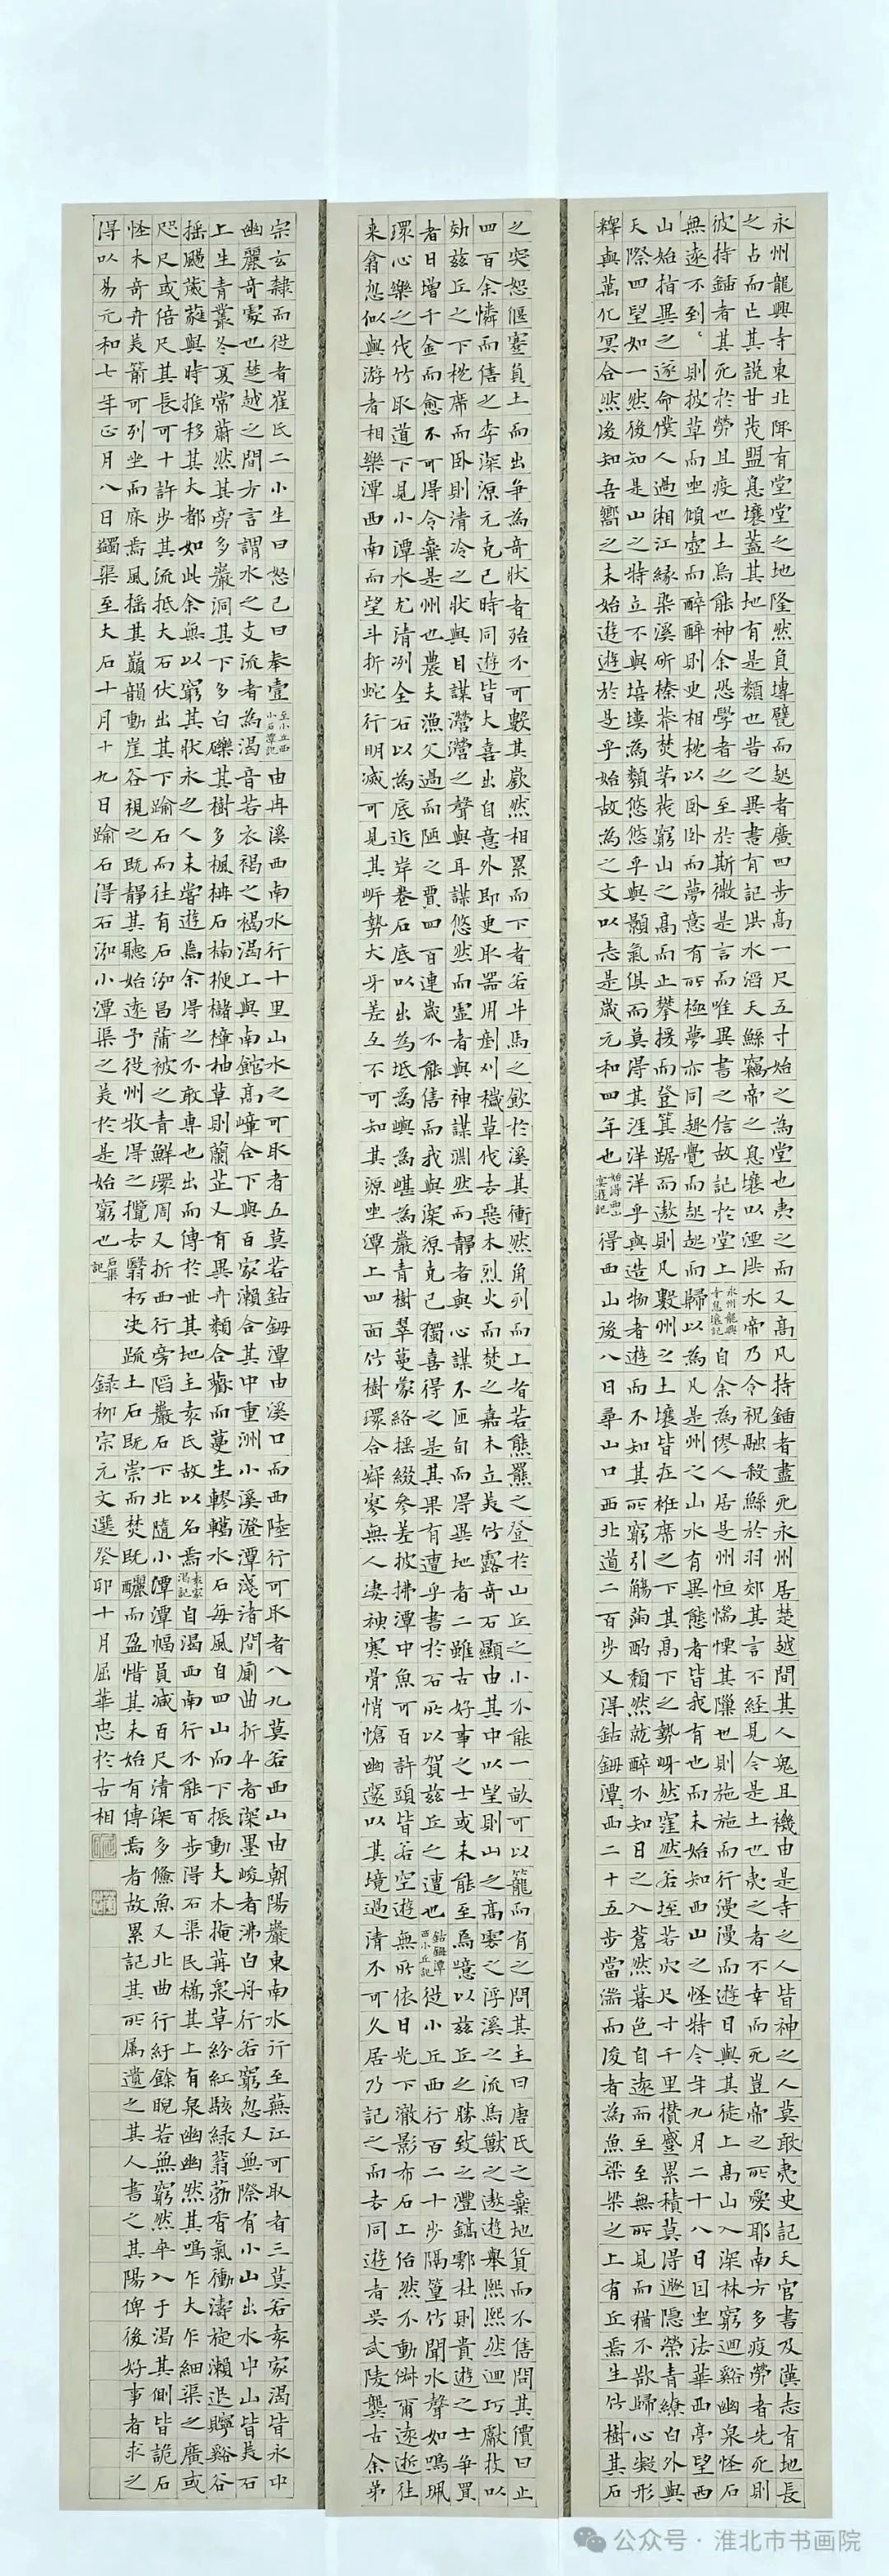 永州龍興寺東北陬有堂堂之地隆然負塼甓而起者廣四步高一尺五寸始之為堂也夷之而又高凡持鍤者盡死永州居楚越間其人鬼且禨由是寺之人皆神之人莫敢夷史記天官書及漢志有地長
之占而亡其說甘茂盟息壤蓋其地有是類也昔之異書有記洪水滔天鯀竊帝之息壤以湮洪水帝乃令祝融殺鯀於羽郊其言不經見今是土也夷之者不幸而死豈帝之所愛耶南方多疫勞者先死則
彼持鍤者其死於勞且疫也土烏能神余恐學者之至於斯徵是言而唯異書之信故記於堂上永州龍興寺息壤記自余為僇人居是州恒惴慄其隟也則施施而行漫漫而遊日與其徒上高山入深林窮迴谿幽泉怪石
無遠不到〻則披草而坐傾壺而醉醉則更相枕以卧卧而夢意有所極夢亦同趣覺而起起而歸以為凡是州之山水有異態者皆我有也而未始知西山之怪特今年九月二十八日因坐法華西亭望西
山始指異之遂命僕人過湘江緣染溪斫榛莽焚茅茷窮山之高而止攀援而登箕踞而遨則凡數州之土壤皆在衽席之下其高下之勢岈然窪然若垤若穴尺寸千里攢蹙累積莫得遯隱縈青繚白外與
天際四望如一然後知是山之特立不與培塿為類悠悠乎與顥氣俱而莫得其涯洋洋乎與造物者遊而不知其所窮引觴滿酌頹然就醉不知日之入蒼然暮色自遠而至至無所見而猶不欲歸心凝形
釋與萬化冥合然後知吾嚮之未始遊遊於是乎始故為之文以志是歲元和四年也始得西山宴遊記得西山後八日尋山口西北道二百步又得鈷鉧潭西二十五步當湍而浚者為魚梁梁之上有丘焉生竹樹其石
之突怒偃蹇負土而出爭為奇狀者殆不可數其嶔然相累而下者若牛馬之飲於溪其衝然角列而上者若熊羆之登於山丘之小不能一畝可以籠而有之問其主曰唐氏之棄地貨而不售問其價曰止
四百余憐而售之李深源元克己時同遊皆大喜出自意外即更取器用剷刈穢草伐去惡木烈火而焚之嘉木立美竹露奇石顯由其中以望則山之高雲之浮溪之流鳥獸之遨遊舉熙熙然迴巧獻技以
効茲丘之下枕席而卧則清泠之狀與目謀瀯瀯之聲與耳謀悠然而虛者與神謀淵然而靜者與心謀不匝旬而得異地者二雖古好事之士或未能至焉噫以茲丘之勝致之灃鎬鄠杜則貴遊之士爭買
者日增千金而愈不可得今棄是州也農夫漁父過而陋之賈四百連歲不能售而我與深源克己獨喜得之是其果有遭乎書於石所以賀茲丘之遭也鈷鉧潭西小丘記從小丘西行百二十步隔篁竹聞水聲如鳴珮
環心樂之伐竹取道下見小潭水尤清冽全石以為底近岸卷石底以出為坻為嶼為嵁為巖青樹翠蔓蒙絡搖綴參差披拂潭中魚可百許頭皆若空遊無所依日光下澈影布石上佁然不動俶爾遠逝往
來翕忽似與游者相樂潭西南而望斗折蛇行明滅可見其岸勢犬牙差互不可知其源坐潭上四面竹樹環合寂寥無人凄神寒骨悄愴幽邃以其境過清不可久居乃記之而去同遊者吳武陵龔古余弟
宗玄隸而從者崔氏二小生曰恕己曰奉壹至小丘西小石潭記由冉溪西南水行十里山水之可取者五莫若鈷鉧潭由溪口而西陸行可取者八九莫若西山由朝陽巖東南水行至蕪江可取者三莫若袁家渴皆永中
幽麗奇處也楚越之間方言謂水之支流者為渴音若衣褐之褐渴上與南館高嶂合下與百家瀨合其中重洲小溪澄潭淺渚間廁曲折平者深墨峻者沸白舟行若窮忽又無際有小山出水中山皆美石
上生青叢冬夏常蔚然其旁多巖洞其下多白礫其樹多楓柟石楠楩櫧樟柚草則蘭芷又有異卉類合歡而蔓生轇轕水石每風自四山而下振動大木掩苒衆草紛紅駭綠蓊葧香氣衝濤旋瀨退貯谿谷
搖颺葳蕤與時推移其大都如此余無以窮其狀永之人未嘗遊焉余得之不敢專也出而傳於世其地主袁氏故以名焉袁家渴記自渴西南行不能百步得石渠民橋其上有泉幽幽然其鳴乍大乍細渠之廣或
咫尺或倍尺其長可十許步其流抵大石伏出其下踰石而往有石泓昌蒲被之青鮮環周又折西行旁陷巖石下北隨小潭潭幅員減百尺清深多鯈魚又北曲行紆餘睨若無窮然卒入于渴其側皆詭石
怪木奇卉美箭可列坐而庥焉風搖其巔韻動崖谷視之既靜其聽始遠予從州牧得之攬去翳朽决疏土石既崇而焚既釃而盈惜其未始有傳焉者故累記其所屬遺之其人書之其陽俾後好事者求之
得以易元和七年正月八日蠲渠至大石十月十九日踰石得石泓小潭渠之美於是始窮也石渠記錄柳宗元文選癸卯十月屈華忠於古相
公众号·淮北市书画院